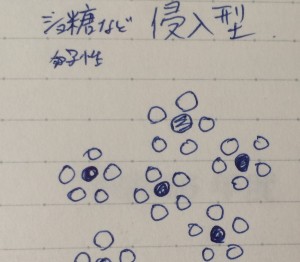 ショ糖など 侵入型
分子性